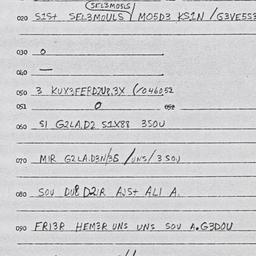 (SEL3MOSLS)
020 S1S+ SEL3MOULS / MO5D3 KS1N / G3VE5S3
030 O
040 —
050 3 KUX3FERD2U8.3X (/0460,52
051 O 052
060 S1 G2LA.D2 S1X88 3SOU
070 MIR G2LA.D3N/35 / UNS / 3 SOU
080 SOU DU8 D2IR AJS+ AL1 A.
090 FRI3R HEM3R UNS UNS SOU A.G3DOU